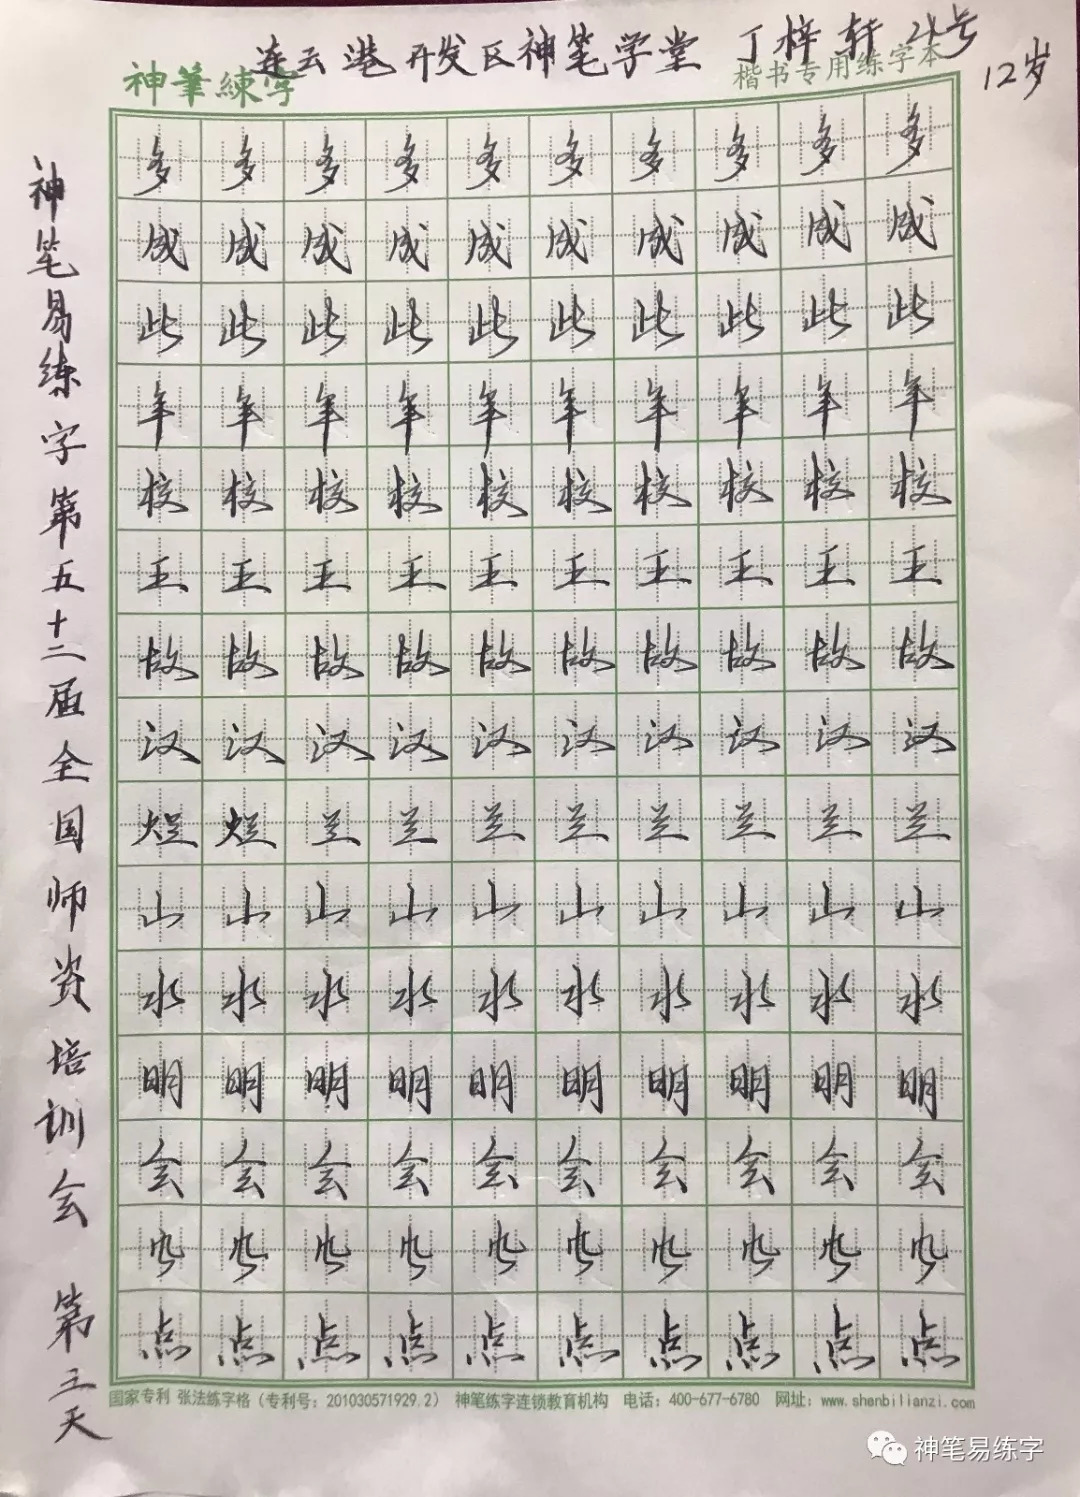 连云港开发区神笔学堂 丁梓轩 24号
12岁
神筆練字
楷书专用练字本
神笔易练字第五十二届全国师资培训会 第三天
多多多多多多多多多多
成成成成成成成成成成
此此此此此此此此此此
年年年年年年年年年年
校校校校校校校校校校
王王王王王王王王王王
故故故故故故故故故故
汉汉汉汉汉汉汉汉汉汉
烂烂兰兰兰兰兰兰兰兰
山山山山山山山山山山
水水水水水水水水水水
明明明明明明明明明明
会会会会会会会会会会
点点点点点点点点点点
国家专利 张法练字格（专利号：201030571929.2） 神笔练字连锁教育机构 电话：400-677-6780 网址：www.shenbilianzi.com
神笔易练字